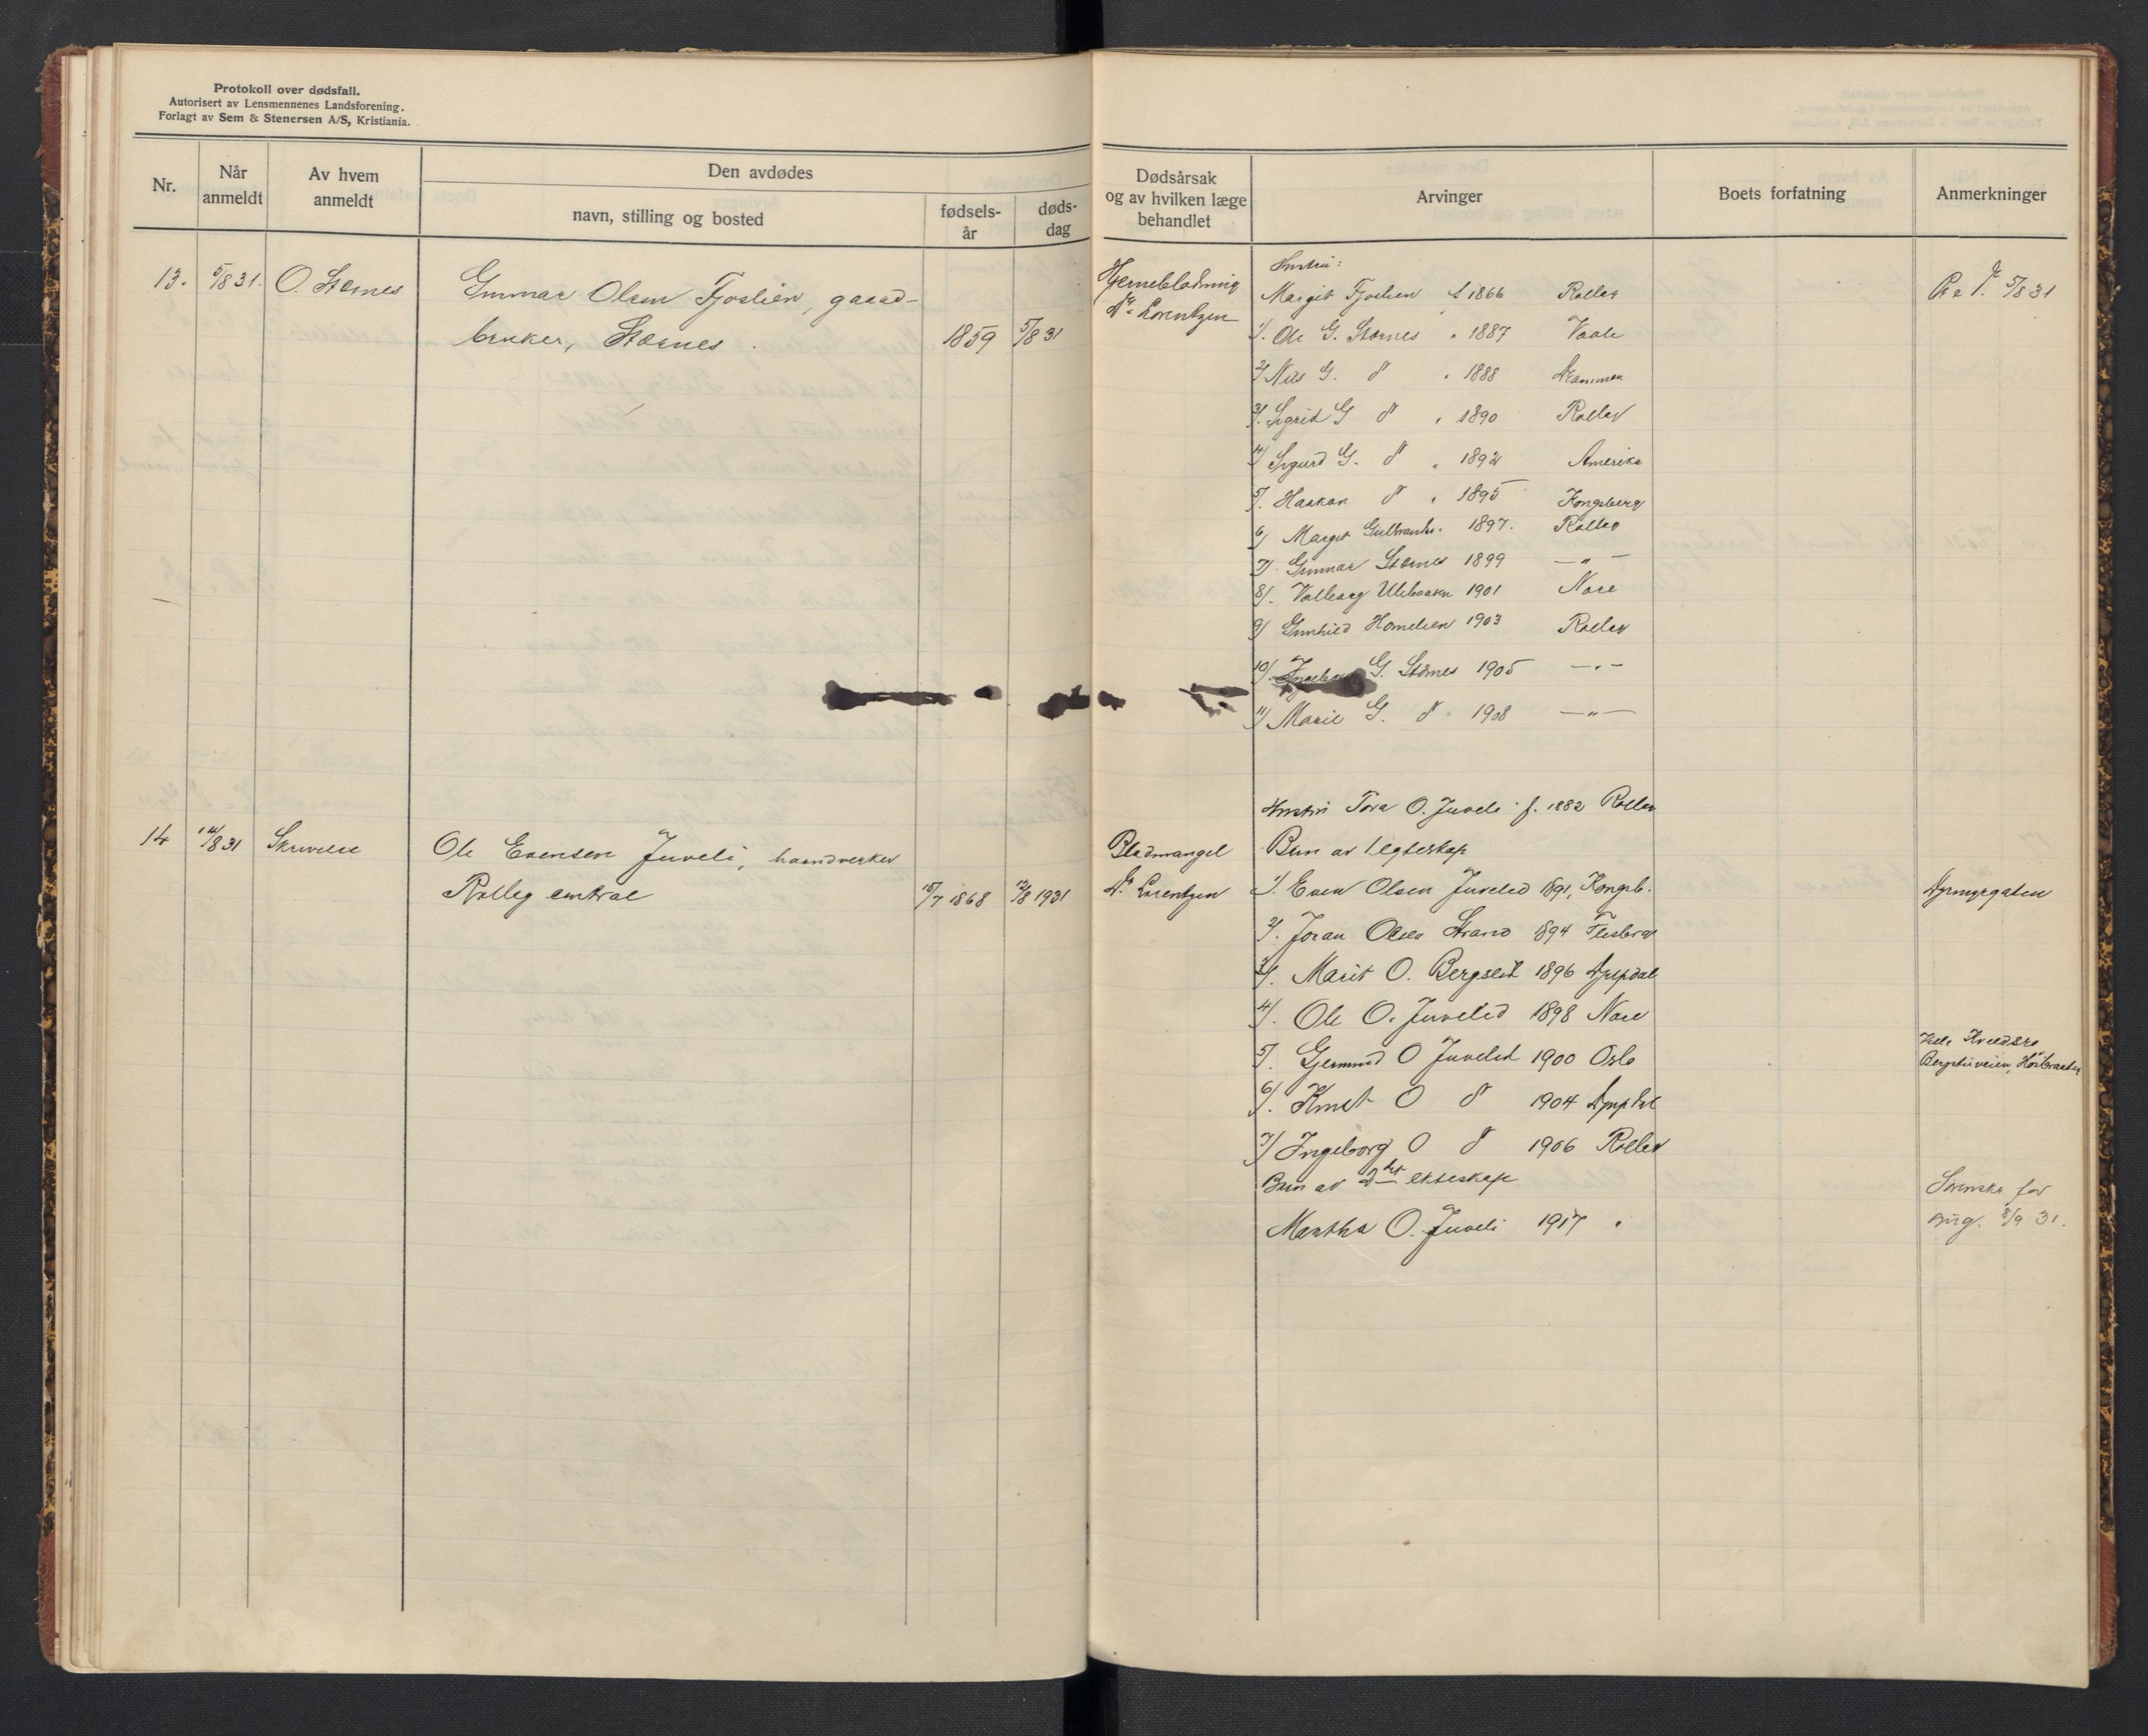 Protokoll over dødsfall.
Autorisert av Lensmennenes Landsforening.
Forlagt av Sem & Stenersen A/S, Kristiania.
Nr.
Når anmeldt
Av hvem anmeldt
Den avdødes
navn, stilling og bosted
fødsels-år
døds-dag
Dødsårsak og av hvilken læge behandlet
Arvinger
Boets forfatning
Anmerkninger
13. 5/8 31. O. Stærnes Gunnar Olsen Fjøslien, gaard-
bruker, Stærnes. 1859 5/8 31
Hjerneblødning
Dr. Lorentzen
Hustru:
Margit Fjøslien f. 1866 Rollag
1/. Ole G. Stærnes " 1887 Vaale
2/ Nils G. do " 1888 Drammen
3/. Sigrid G do " 1890 Rollag
4/ Sigurd G. do " 1892 Amerika
5/. Haakon do " 1895 Kongsberg
6/ Margit Gulbrands. 1897. Rollag
7/. Gunnar Stærnes 1899 — " —
8/. Valborg Ulebaaen 1901 Nore
9/ Gunhild 1903 Rollag
10/. Ingeborg G. Stærnes 1905 — " —
11/ Marie G. do 1908 — " —
5/8 31
14 14/8 31 Skrivelse Ole Evensen Juveli, haandverker
Rollag central 15/7 1868 12/8 1931
Blodmangel
Dr. Lorentzen
Hustru Tora O. Juveli f. 1882 Rollag
Barn av 1 egteskap
1/. Even Olsen Juvelid 1891, Kongsb.
2/. Joran Olsen Strand 1894 Flesberg
3/. Marit O. Bergseth 1896 Lyngdal
4/. Ole O. Juvelid 1898 Nore
5/. Gjermund O Juvelid 1900 Oslo
6/. Knut O do 1904 Lyngdal
7/ Ingeborg O do 1906 Rollag
Barn av 2det ekteskap
Martha O. Juveli 1917 "
Dyrmyrgaten
8/9 31.